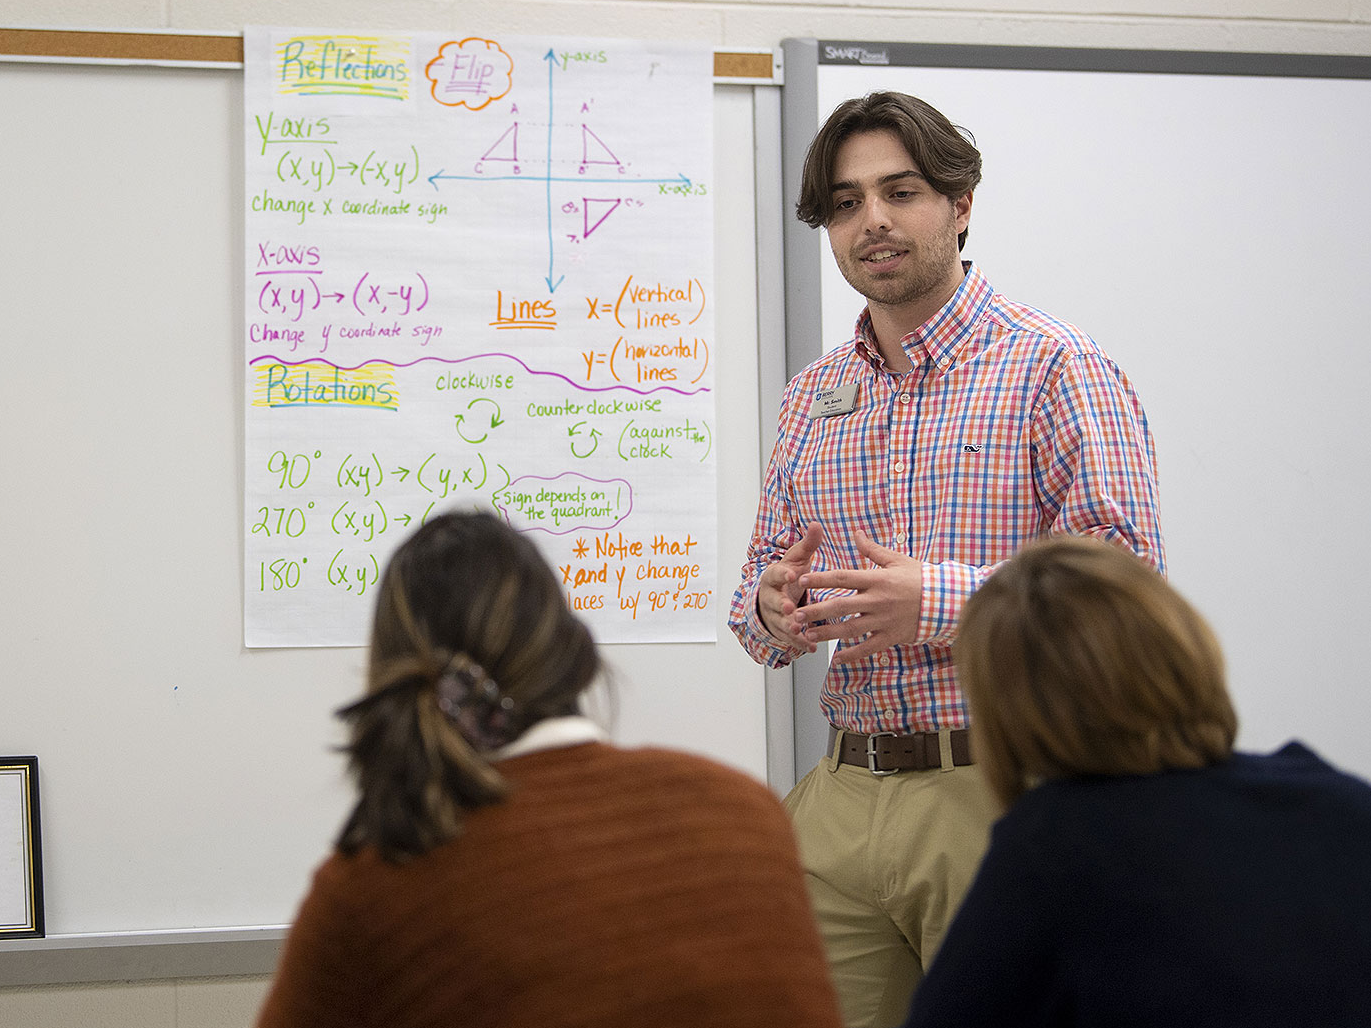 Reflections
Flip
y-axis
SMART Board
A
A'
C
B
B'
C'
x-axis
Y-axis
(x,y)→(-x,y)
change x coordinate sign
X-axis
(x,y)→(x,-y)
Change y coordinate sign
Lines
x=(vertical lines)
y=(horizontal lines)
Rotations
clockwise
counterclockwise
(against the
clock)
90° (x,y)→(y,x)
270° (x,y)→(
180° (x,y)
sign depends on
the quadrant!
* Notice that
x and y change
laces w/ 90° & 270°
BERRY
Mr. Smith